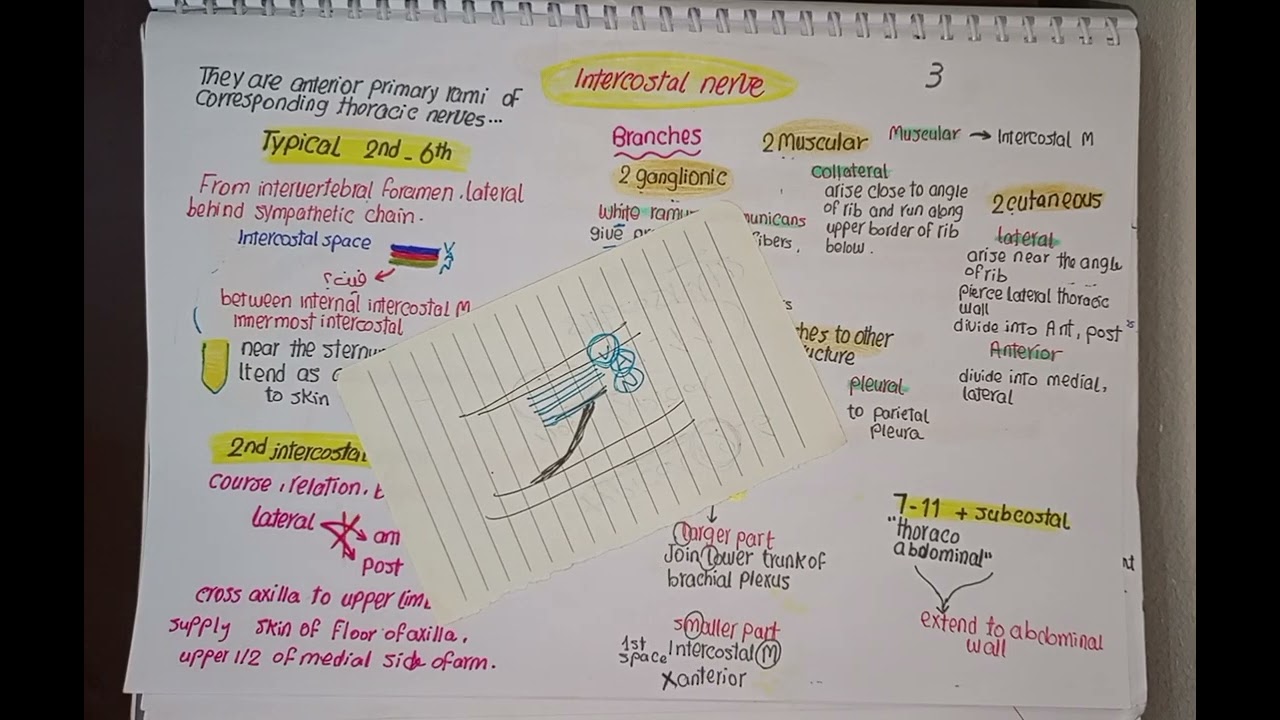 3
Intercostal nerve
They are anterior primary rami of
Corresponding thoracic nerves...
Typical 2nd - 6th
From intervertebral foramen. lateral
behind sympathetic chain.
Intercostal space
V
A
N
فين؟
between internal intercostal M
innermost intercostal
near the
to skin
2nd
course, relation,
lateral
post
cross axilla to upper
supply skin of Floor of axilla,
upper 1/2 of medial side of arm.
Branches
2 ganglionic
White
give
2 Muscular
Muscular → Intercostal M
Collateral
arise close to angle
of rib and run along
upper border of rib
below.
to other
pleural
to parietal
pleura
2 cutaneous
lateral
arise near the angle
of rib
pierce lateral thoracic
wall
divide into Ant, post
Anterior
divide into medial,
lateral
V
A
N
Larger part
Join Lower trunk of
brachial plexus
smaller part
1st space Intercostal M
X anterior
7-11 + subcostal
"thoraco
abdominal"
extend to abdominal
wall